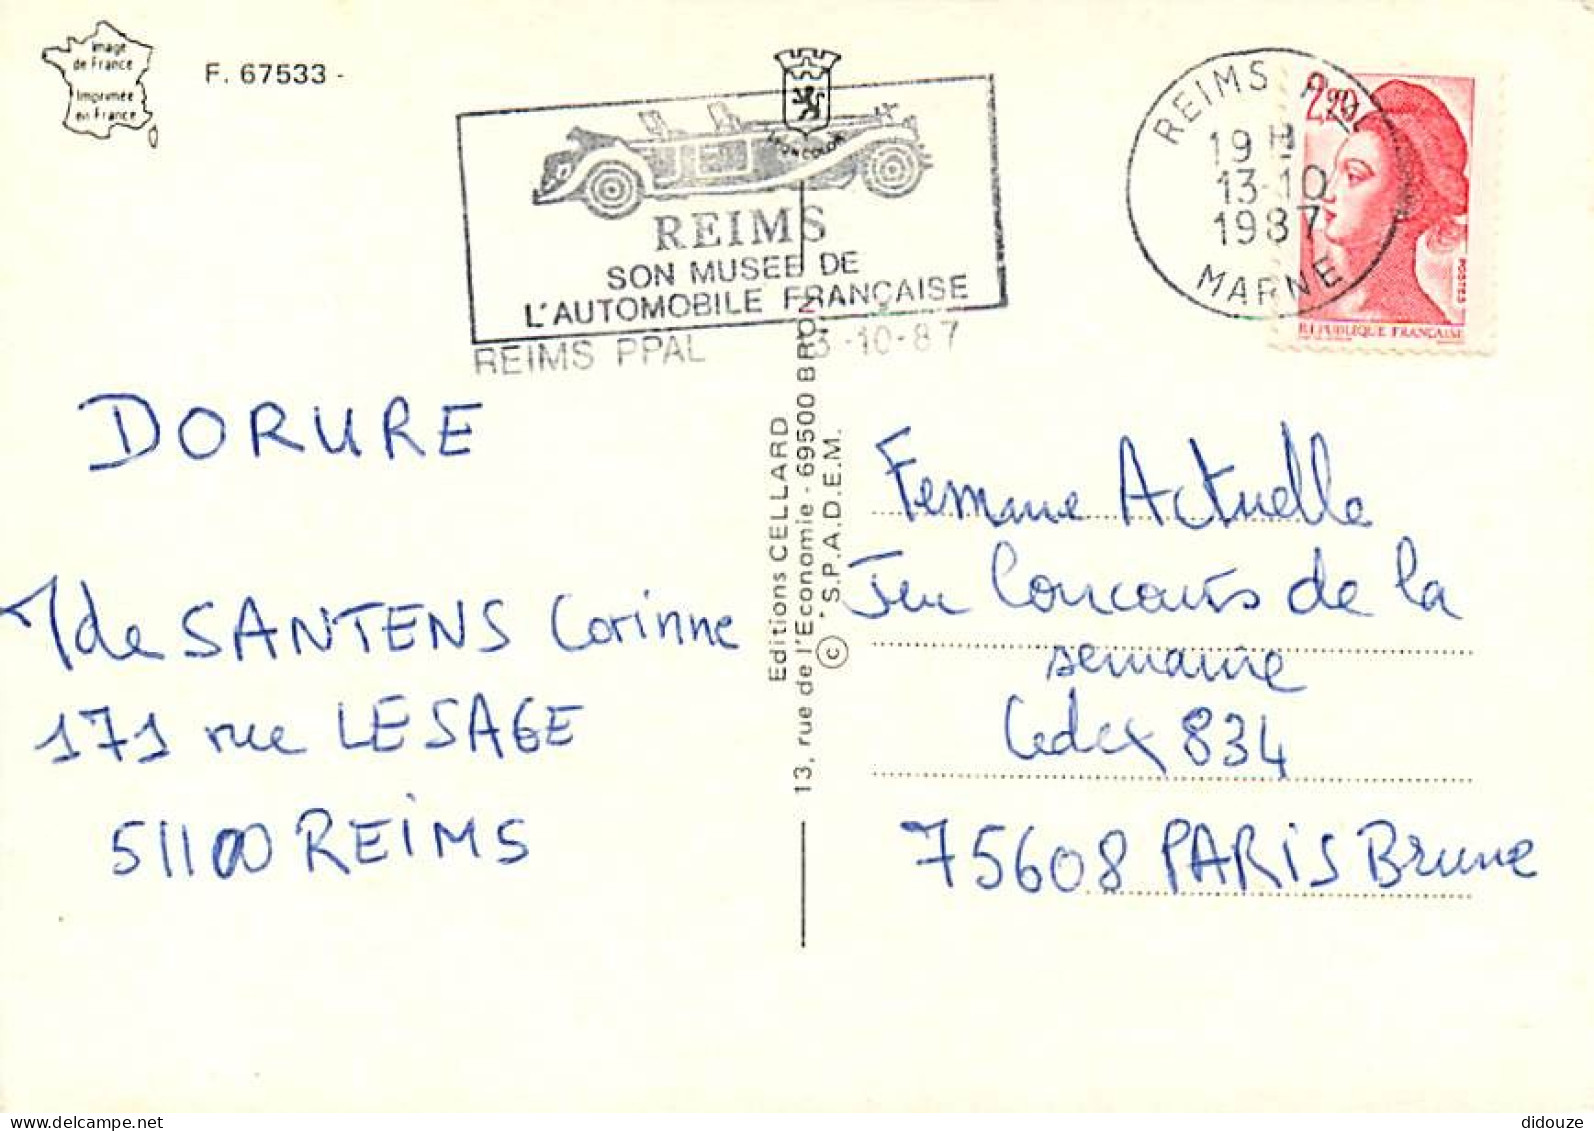 Image
de France
Imprimée
en France
F. 67533 -
LYONCOLOR
REIMS
SON MUSEE DE
L'AUTOMOBILE FRANÇAISE
REIMS PPAL
3-10-87
REIMS
19 H
13-10
1987
MARNE
2,20
POSTES
REPUBLIQUE FRANÇAISE
DORURE
Mde SANTENS Corinne
171 rue LESAGE
51100 REIMS
Editions CELLARD
13, rue de l'Economie - 69500 BRON
© "S.P.A.D.E.M.
Femme Actuelle
Jeu Concours de la
semaine
Cedex 834
75608 PARIS Brune
delcampe.net
didouze